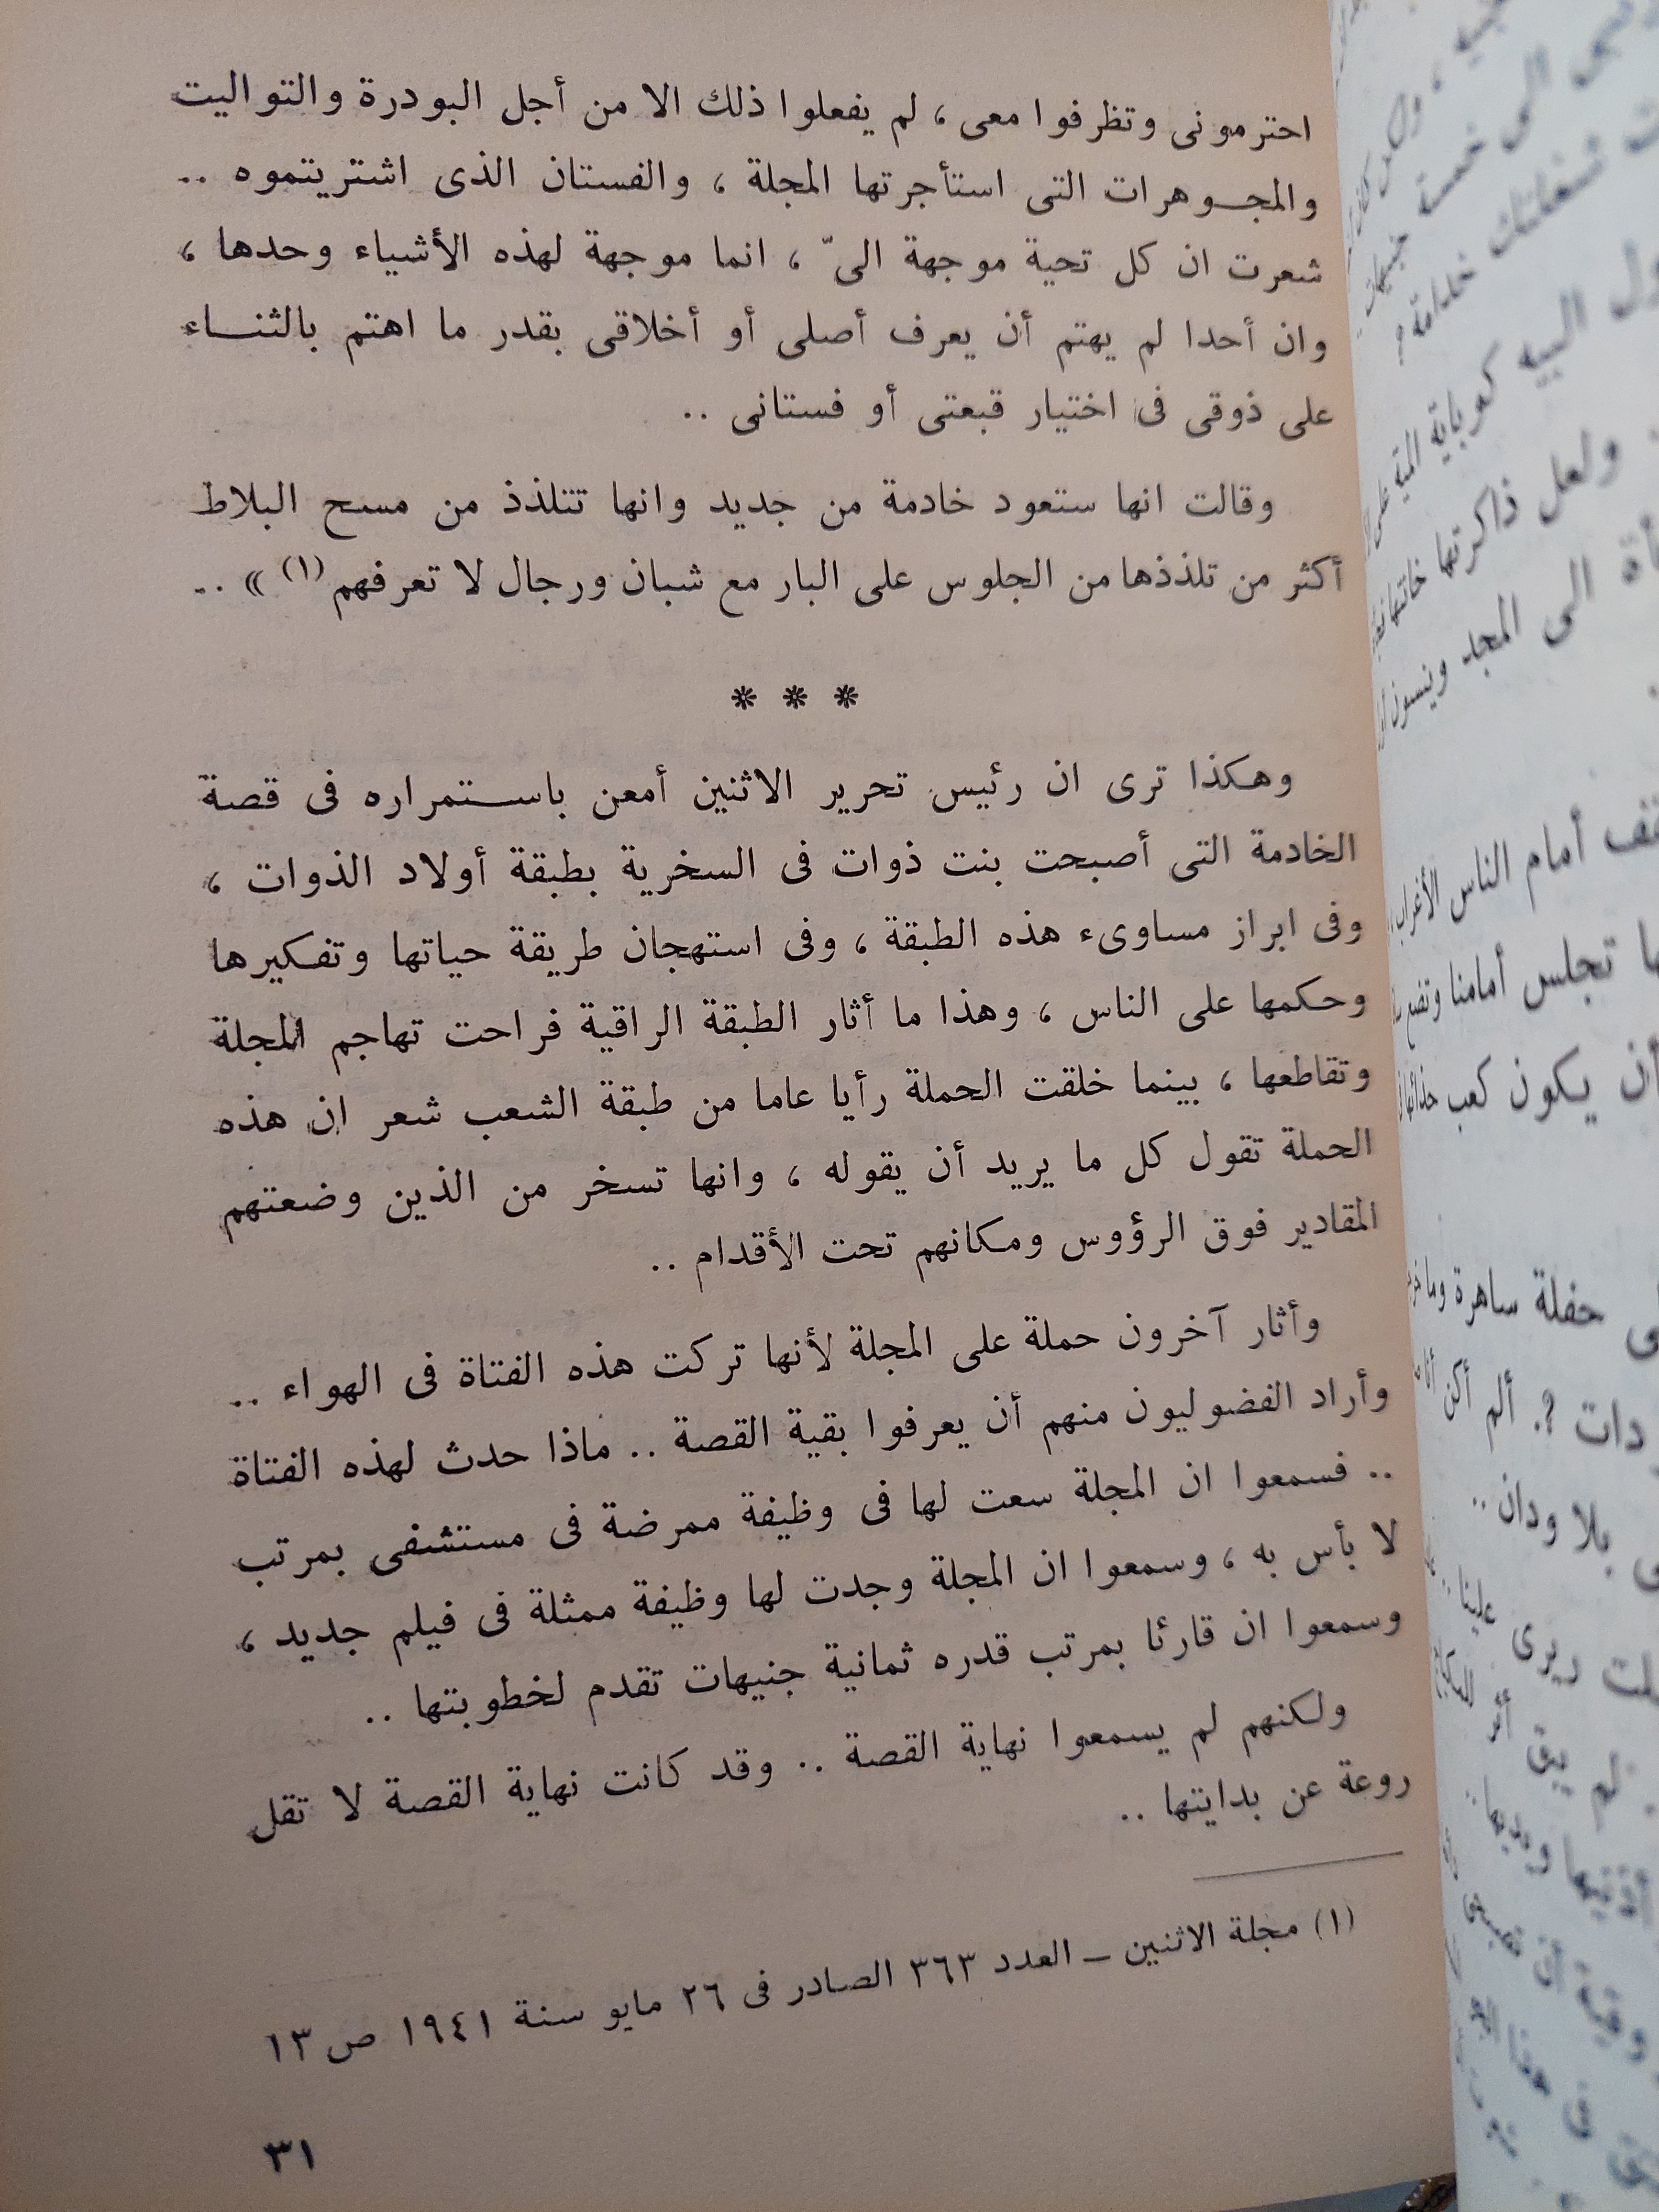 احترمونى وتظرفوا معى ، لم يفعلوا ذلك الا من أجل البودرة والتواليت
والمجوهرات التى استأجرتها المجلة ، والفستان الذى اشتريتموه ..
شعرت ان كل تحية موجهة الىّ ، انما موجهة لهذه الأشياء وحدها ،
وان أحدا لم يهتم أن يعرف أصلى أو أخلاقى بقدر ما اهتم بالثناء
على ذوقى فى اختيار قبعتى أو فستانى ..
وقالت انها ستعود خادمة من جديد وانها تتلذذ من مسح البلاط
أكثر من تلذذها من الجلوس على البار مع شبان ورجال لا تعرفهم (١) » ..
* * *
وهكذا ترى ان رئيس تحرير الاثنين أمعن باستمراره فى قصة
الخادمة التى أصبحت بنت ذوات فى السخرية بطبقة أولاد الذوات ،
وفى ابراز مساوىء هذه الطبقة ، وفى استهجان طريقة حياتها وتفكيرها
وحكمها على الناس ، وهذا ما أثار الطبقة الراقية فراحت تهاجم المجلة
وتقاطعها ، بينما خلقت الحملة رأيا عاما من طبقة الشعب شعر ان هذه
الحملة تقول كل ما يريد أن يقوله ، وانها تسخر من الذين وضعتهم
المقادير فوق الرؤوس ومكانهم تحت الأقدام ..
وأثار آخرون حملة على المجلة لأنها تركت هذه الفتاة فى الهواء ..
وأراد الفضوليون منهم أن يعرفوا بقية القصة .. ماذا حدث لهذه الفتاة
.. فسمعوا ان المجلة سعت لها فى وظيفة ممرضة فى مستشفى بمرتب
لا بأس به ، وسمعوا ان المجلة وجدت لها وظيفة ممثلة فى فيلم جديد ،
وسمعوا ان قارئا بمرتب قدره ثمانية جنيهات تقدم لخطوبتها ..
ولكنهم لم يسمعوا نهاية القصة .. وقد كانت نهاية القصة لا تقل
روعة عن بدايتها ..
(١) مجلة الاثنين – العدد ٣٦٣ الصادر فى ٢٦ مايو سنة ١٩٤١ ص ١٣
٣١
خمسة جنيهات
خدامة ؟
كوباية المية على
ولعل ذاكرتها خانتها
الى المجد وينسون
أمام الناس الأغراب
تجلس أمامنا وتضع
أن يكون كعب حذائها
حفلة ساهرة وما
دات ؟. ألم أكن أنا
بلا ودان ..
يرى علينا
لم يبق أثر للمكياج